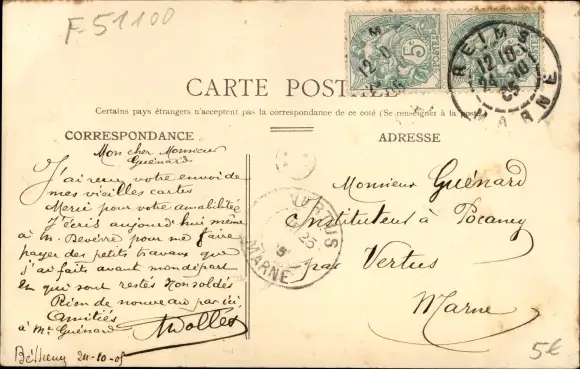 F-51100
5c
POSTES
REIMS
12-10
24-10
05
MARNE
CARTE POST
Certains pays étrangers n'acceptent pas la correspondance de ce coté (Se renseigner à la poste
CORRESPONDANCE
Mon cher Monsieur
Guénard
J'ai reçu votre envoi de
mes vieilles cartes
Merci pour votre amabilité
J'écris aujourd'hui même
à M. pour me faire
payer des petits travaux que
j'ai faits avant mon départ
et qui sont restés non soldés
Rien de nouveau par ici
Amitiés
à Mr Guénard
Bétheny 24-10-05
VERTUS
25
MARNE
ADRESSE
Monsieur Guénard
Instituteur à Pocancy
par Vertus
Marne
5€